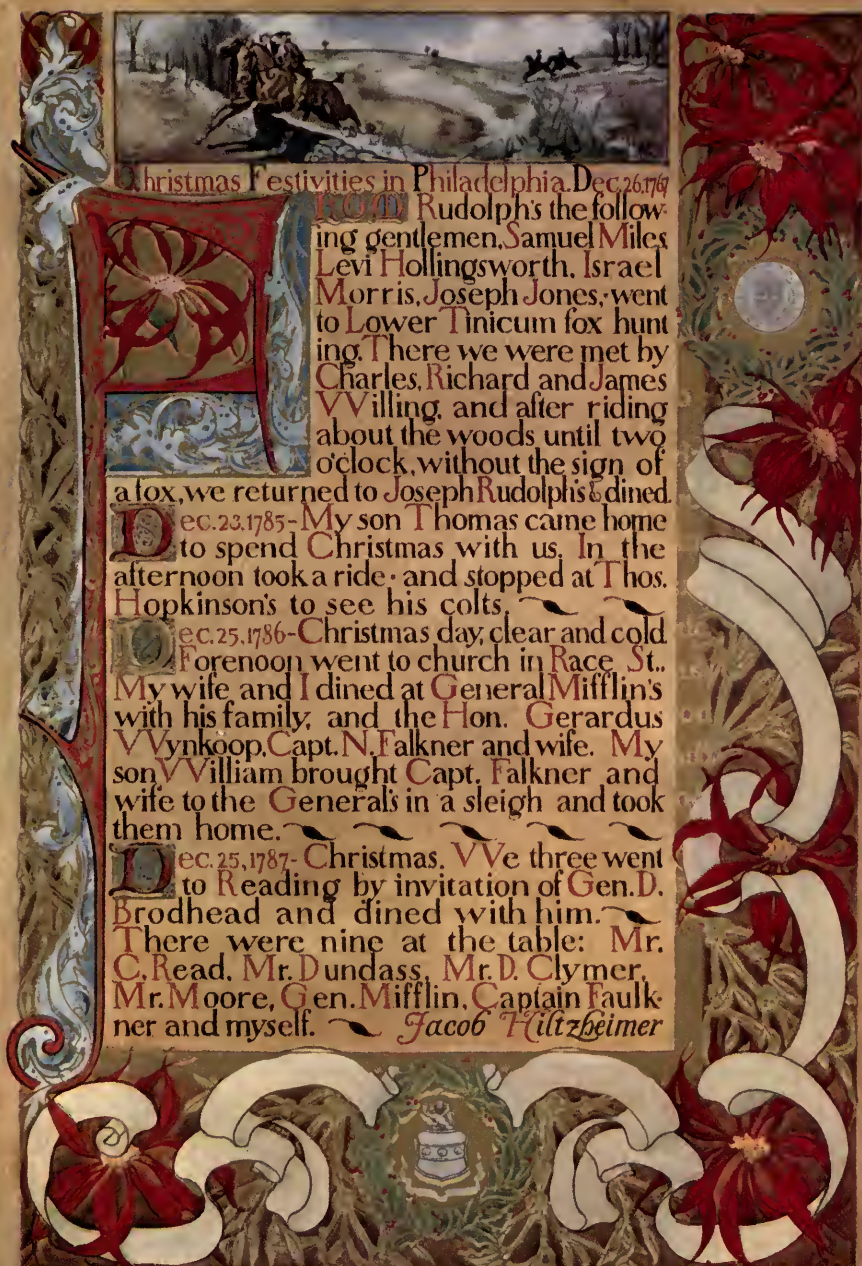 Christmas Festivities in Philadelphia. Dec. 26, 1767
FROM Rudolph's the follow-
ing gentlemen, Samuel Miles
Levi Hollingsworth, Israel
Morris, Joseph Jones, went
to Lower Tinicum fox hunt
ing. There we were met by
Charles, Richard and James
Willing, and after riding
about the woods until two
o'clock, without the sign of
a fox, we returned to Joseph Rudolph's & dined.
Dec. 23, 1785- My son Thomas came home
to spend Christmas with us. In the
afternoon took a ride · and stopped at Thos.
Hopkinson's to see his colts.
Dec. 25, 1786-Christmas day, clear and cold
Forenoon went to church in Race St..
My wife and I dined at General Mifflin's
with his family, and the Hon. Gerardus
Wynkoop, Capt. N. Falkner and wife. My
son William brought Capt. Falkner and
wife to the General's in a sleigh and took
them home.
Dec. 25, 1787- Christmas. We three went
to Reading by invitation of Gen. D.
Brodhead and dined with him.
There were nine at the table: Mr.
C. Read, Mr. Dundass, Mr. D. Clymer,
Mr. Moore, Gen. Mifflin, Captain Faulk-
ner and myself. Jacob Hiltzheimer